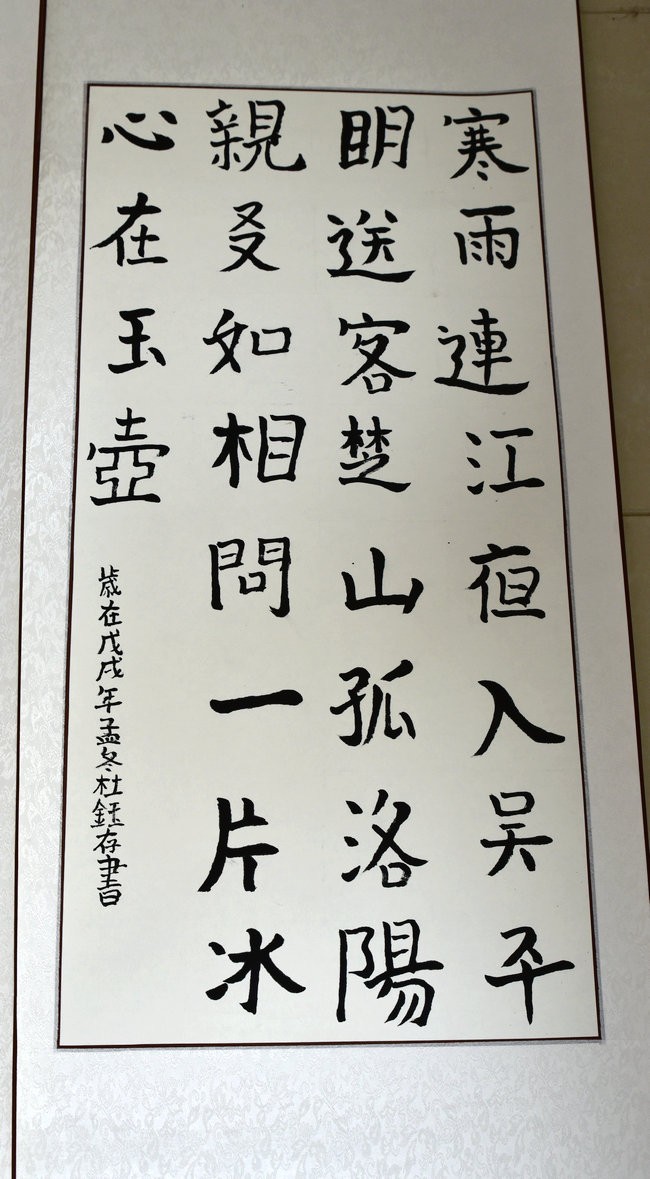 寒雨連江夜入吴平
明送客楚山孤洛陽
親友如相問一片冰
心在玉壺
歲在戊戌年孟冬杜鈺存書